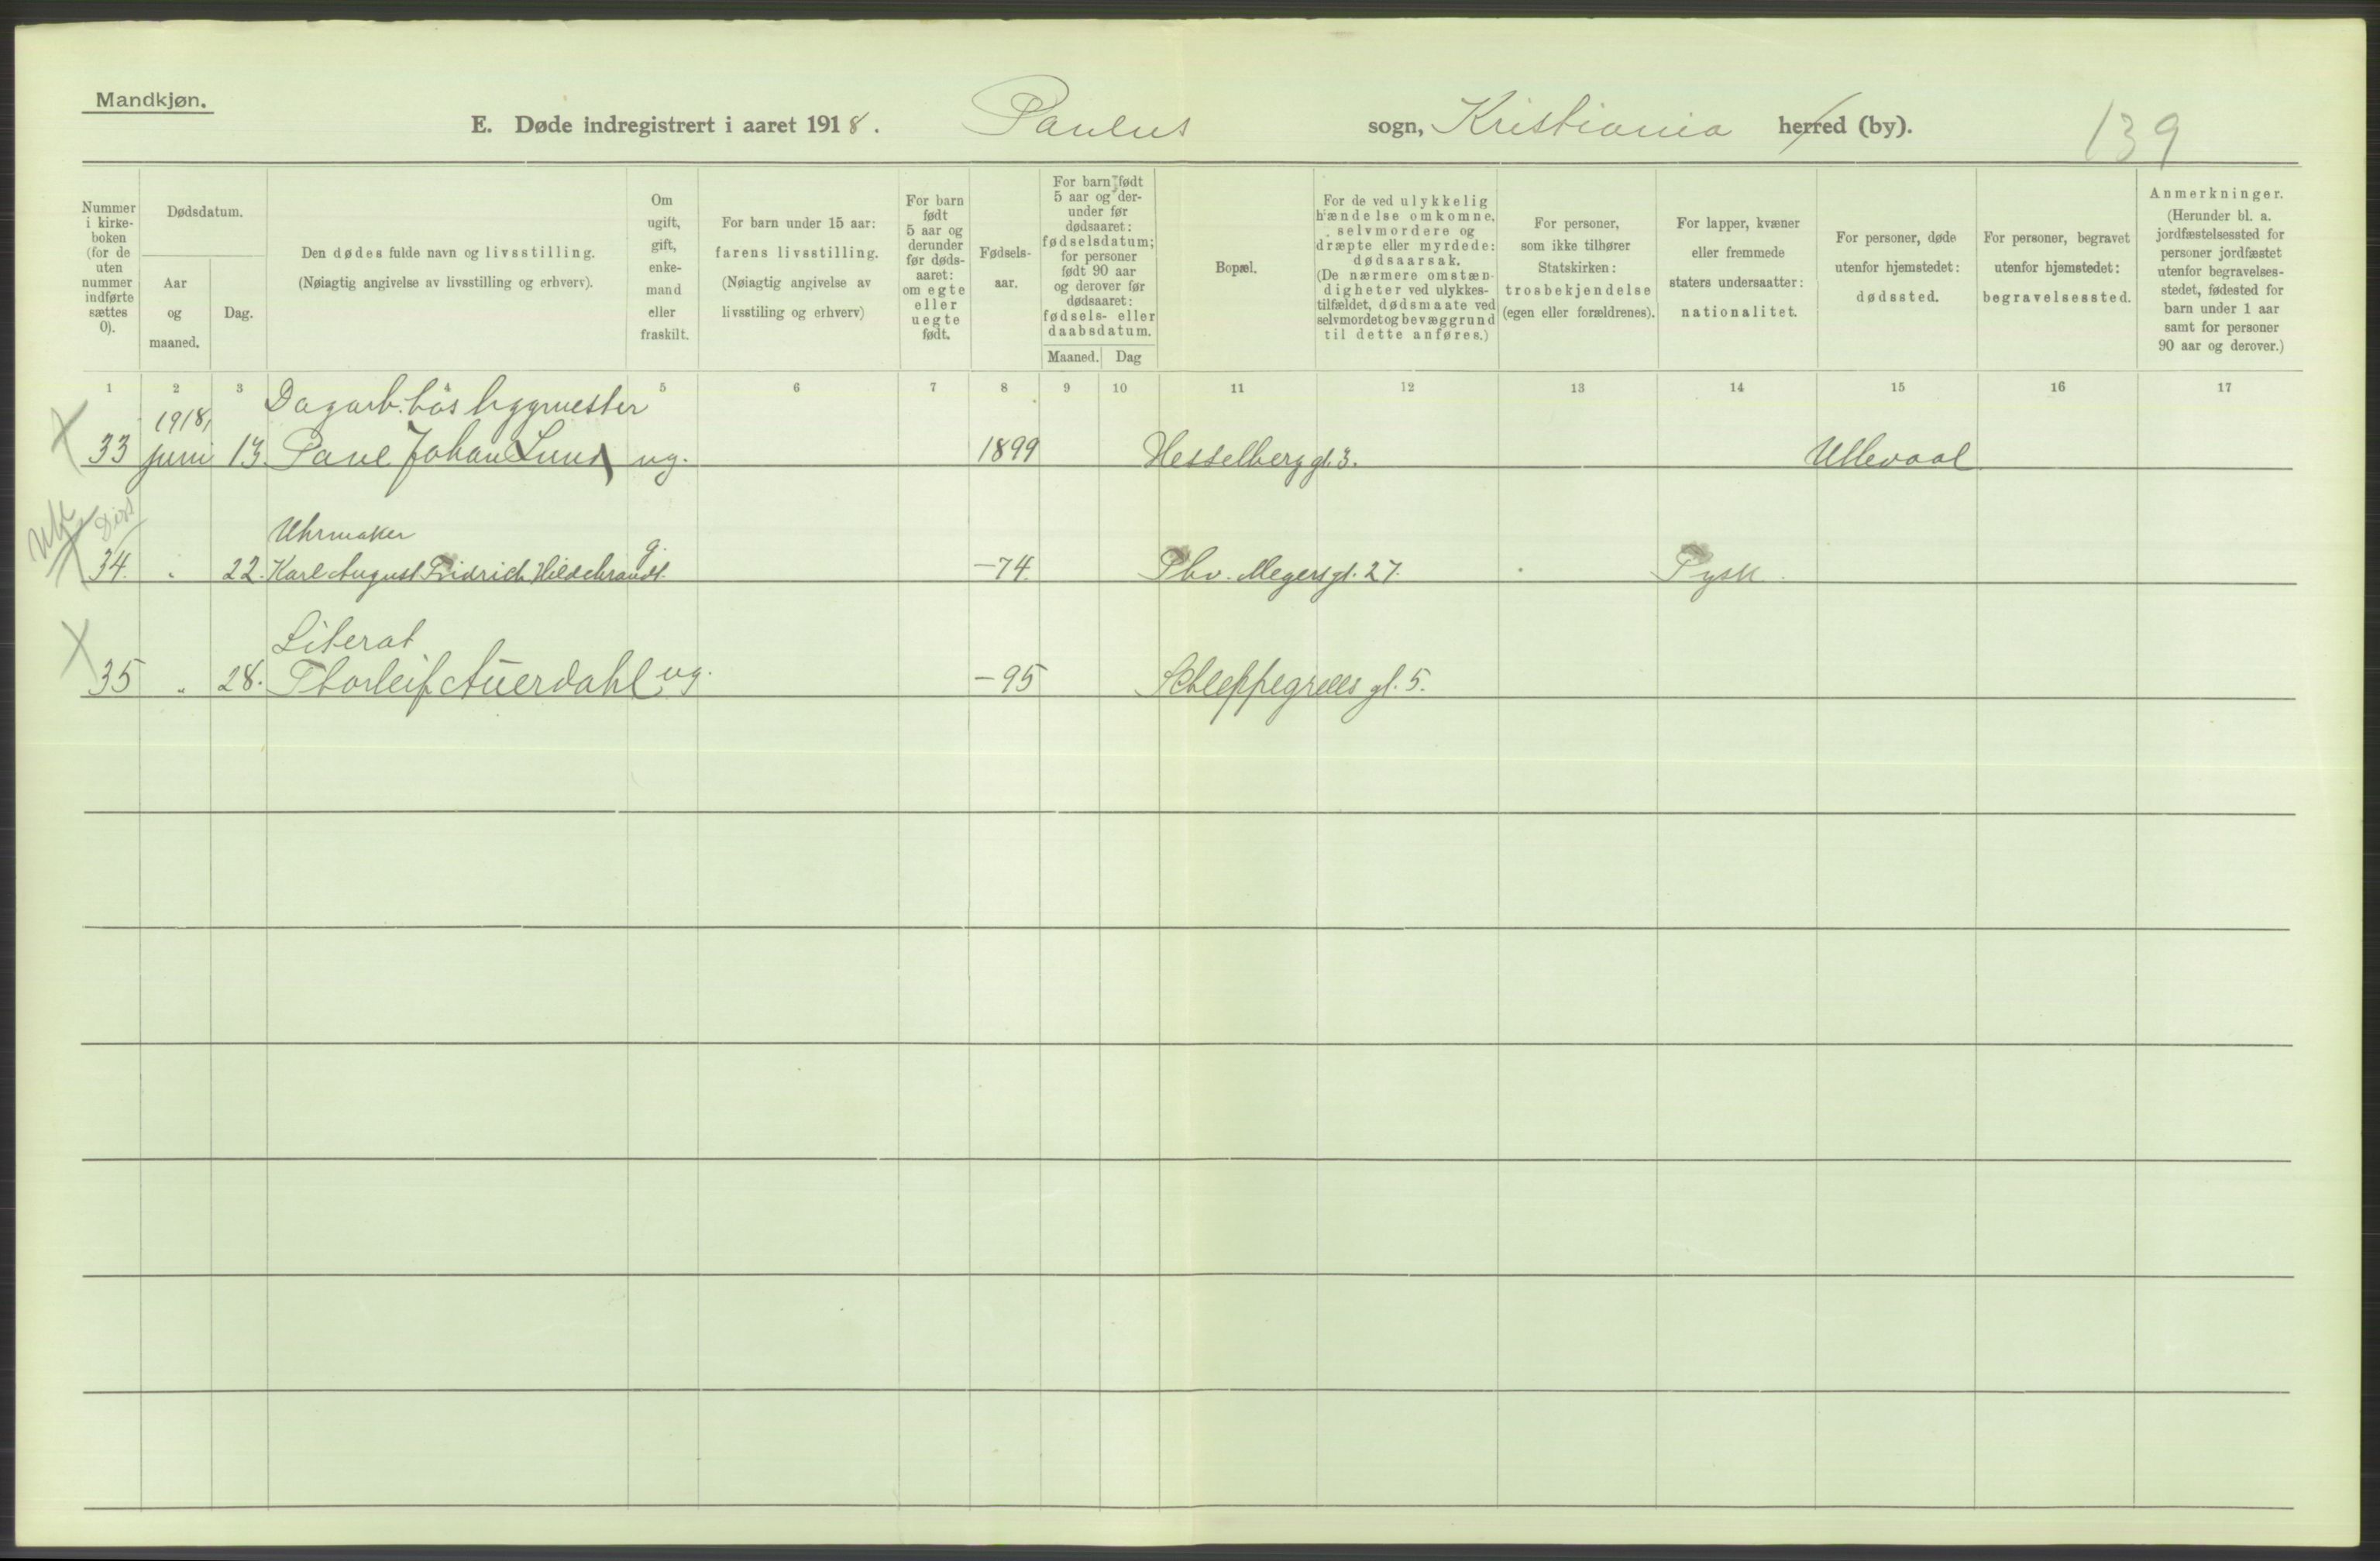 Mandkjøn.
E. Døde indregistrert i aaret 1918. Paulus sogn, Kristiania herred (by). 139
Nummer i kirke-boken (for de uten nummer indførte sættes 0).
Dødsdatum.
Aar og maaned.
Dag.
Den dødes fulde navn og livsstilling.
(Nøiagtig angivelse av livsstilling og erhverv).
Om ugift, gift, enke-mand eller fraskilt.
For barn under 15 aar:
farens livsstilling.
(Nøiagtig angivelse av livsstiling og erhverv)
For barn født 5 aar og derunder før døds-aaret: om egte eller uegte født.
Fødsels-aar.
For barn født 5 aar og der-under før dødsaaret: fødselsdatum; for personer født 90 aar og derover før dødsaaret: fødsels- eller daabsdatum.
Maaned. Dag
Bopæl.
For de ved ulykkelig hændelse omkomne, selvmordere og dræpte eller myrdede: dødsaarsak.
(De nærmere omstæn-digheter ved ulykkes-tilfældet, dødsmaate ved selvmordet og bevæggrund til dette anføres.)
For personer, som ikke tilhører Statskirken: trosbekjendelse (egen eller forældrenes).
For lapper, kvæner eller fremmede staters undersaatter: nationalitet.
For personer, døde utenfor hjemstedet: dødssted.
For personer, begravet utenfor hjemstedet: begravelsessted.
Anmerkninger.
(Herunder bl. a. jordfæstelsessted for personer jordfæstet utenfor begravelses-stedet, fødested for barn under 1 aar samt for personer 90 aar og derover.)
1 2 3 4 5 6 7 8 9 10 11 12 13 14 15 16 17
1918, Dagarb. hos byggmester
33 juni 13. Paul Johan Lund ug. 1899 Hesselberg gt. 3. Ullevaal
Uhrmaker
34. " 22. Karl August Fridrich Hildebrandt. g. -74. Thv. Meyers gt. 27. Tysk.
Literat
35 " 28. Thorleif Auerdahl ug. -95 Schleppegrells gt. 5.